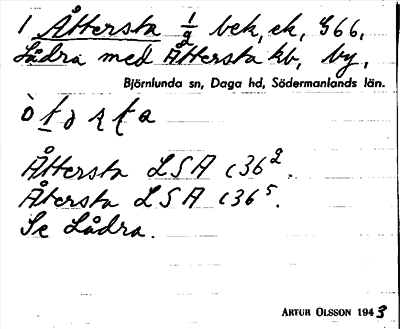 1 Åttersta 1/2 bek, ek, G66,
Lådra med Åttersta kb, by,
Björnlunda sn, Daga hd, Södermanlands län.
Åttersta LSA c36².
Återsta LSA c36⁵.
Se Lådra.
ARTUR OLSSON 1943